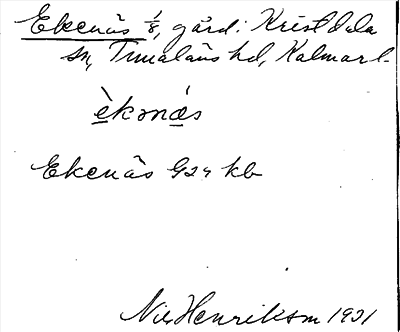 Ekenäs 1/8, gård i Kristdala
sn, Tunaläns hd, Kalmar l.
èkənás
Ekenäs kb
Nils Henriksson 1921